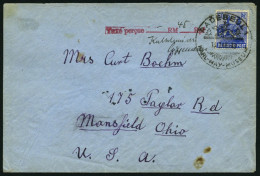 Taxe perçue RM 45
Mrs Curt Boehm
475 Taylor Rd
Mansfield Ohio
U. S. A.